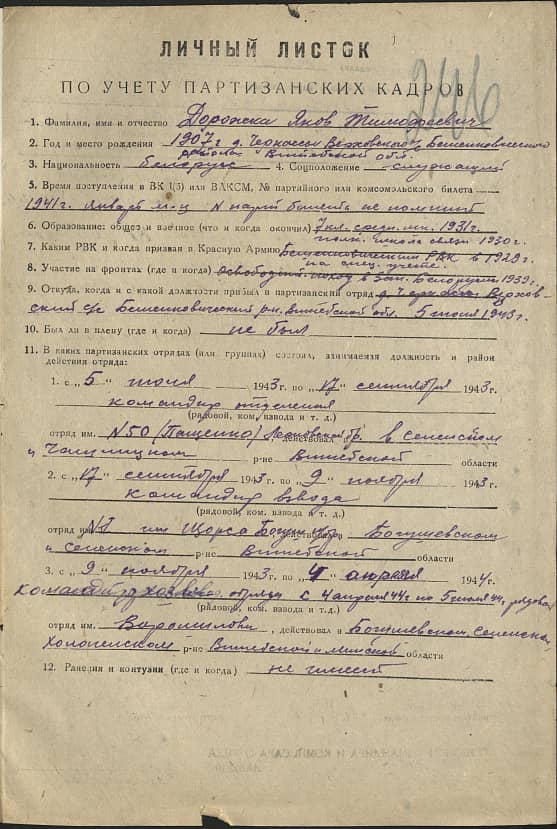 ЛИЧНЫЙ ЛИСТОК
246
ПО УЧЕТУ ПАРТИЗАНСКИХ КАДРОВ
1. Фамилия, имя и отчество Дорожка Яков Тимофеевич
2. Год и место рождения 1907 г. д. Черкассы Верховского Бешенковичского
района Витебской обл.
3. Национальность белорус 4. Соцположение служащий
5. Время поступления в ВК (б) или ВЛКСМ, № партийного или комсомольского билета
1941 г. Январь м-ц N парт билета не помнит
6. Образование: общее и военное (что и когда окончил) 7 кл. средн. шк. 1931 г.
полк. школа связи 1930 г.
7. Каким РВК и когда призван в Красную Армию Бешенковичским РВК в 1929 г.
на спец. учете.
8. Участие на фронтах (где и когда) освободит. поход в Зап. Белоруссию 1939 г.
9. Откуда, когда и с какой должности прибыл в партизанский отряд д. Черкассы Верхов-
ский с/с Бешенковичский р-н. Витебской обл. 5 июня 1943 г.
10. Был ли в плену (где и когда) не был
11. В каких партизанских отрядах (или группах) состоял, занимаемая должность и район
действия отряда:
1. с „5" июня 1943 г. по „17" сентября 1943 г.
командир отделения
(рядовой, ком. взвода и т. д.)
отряд им. N50 (Пащенко) бр. в Сенненском
и Чашницком р-не Витебской области
2. с „17" сентября 1943 г. по „9" ноября 1943 г.
командир взвода
(рядовой, ком. взвода и т. д.)
отряд им. Щорса Богушевском
и Сенненском р-не Витебской области
3. с „9" ноября 1943 г. по „4" апреля 1944 г.
командир хозвзвода отряда с 4 апреля 44 г. по 5 июля 44 г. рядовой
(рядовой, ком. взвода и т.д.)
отряд им. Ворошилова, действовал в Богушевском, Сенненском,
Холопеничском р-не Витебской и Минской области
12. Ранения и контузии (где и когда) не имеет